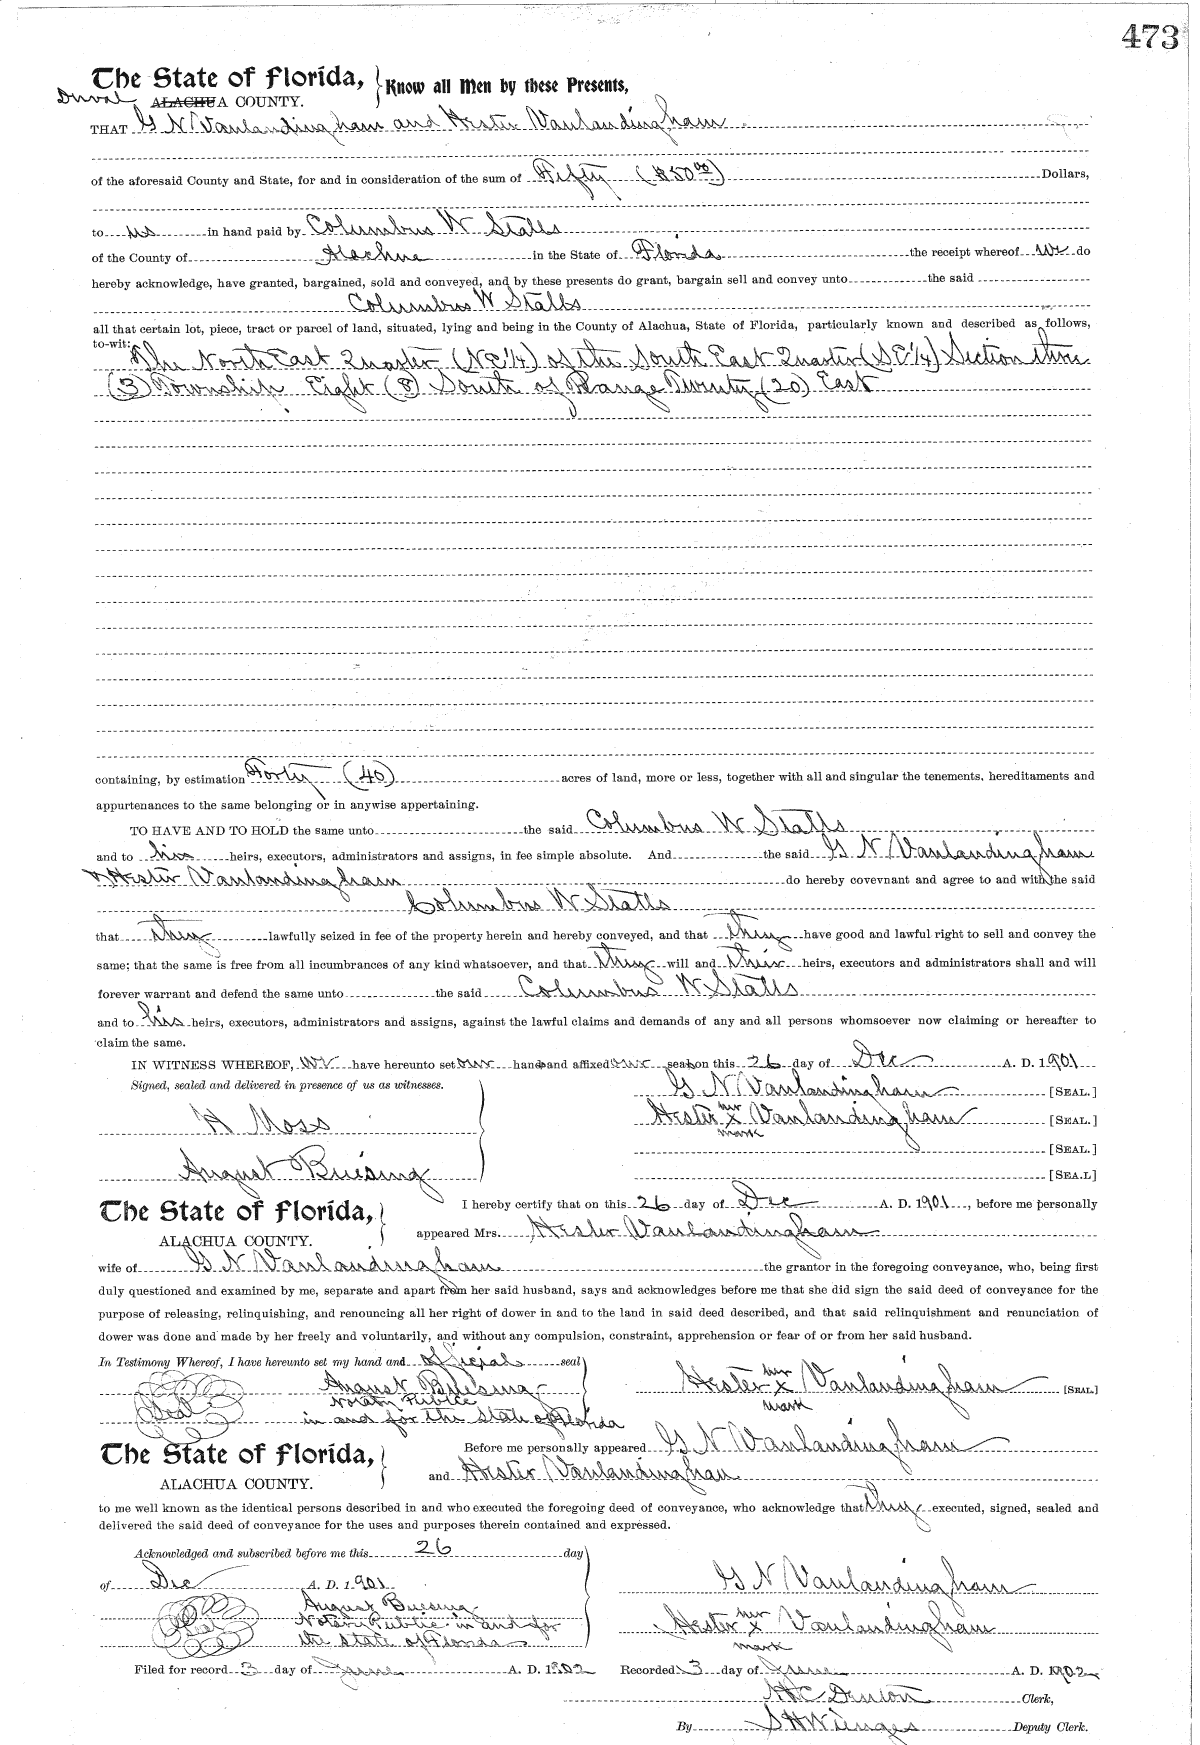 473
The State of Florida, Know all Men by these Presents,
Duval ALACHUA COUNTY.
THAT G N Vanlandingham and Hester Vanlandingham
of the aforesaid County and State, for and in consideration of the sum of Fifty ($50 00) Dollars,
to us in hand paid by Columbus W Stalls
of the County of Alachua in the State of Florida the receipt whereof we do
hereby acknowledge, have granted, bargained, sold and conveyed, and by these presents do grant, bargain sell and convey unto the said
Columbus W Stalls
all that certain lot, piece, tract or parcel of land, situated, lying and being in the County of Alachua, State of Florida, particularly known and described as follows,
to-wit: The North East Quarter (NE 1/4) of the South East Quarter (SE 1/4) Section three
(3) Township Eight (8) South of Range Twenty (20) East
containing, by estimation Forty (40) acres of land, more or less, together with all and singular the tenements, hereditaments and
appurtenances to the same belonging or in anywise appertaining.
TO HAVE AND TO HOLD the same unto the said Columbus W Stalls
and to his heirs, executors, administrators and assigns, in fee simple absolute. And the said G N Vanlandingham
& Hester Vanlandingham do hereby covevnant and agree to and with the said
Columbus W Stalls
that they lawfully seized in fee of the property herein and hereby conveyed, and that they have good and lawful right to sell and convey the
same; that the same is free from all incumbrances of any kind whatsoever, and that they will and their heirs, executors and administrators shall and will
forever warrant and defend the same unto the said Columbus W Stalls
and to his heirs, executors, administrators and assigns, against the lawful claims and demands of any and all persons whomsoever now claiming or hereafter to
claim the same.
IN WITNESS WHEREOF, we have hereunto set our hands and affixed our seals on this 26 day of Dec A. D. 1901
Signed, sealed and delivered in presence of us as witnesses. G N Vanlandingham [SEAL.]
H Moss Hester her x mark Vanlandingham [SEAL.]
[SEAL.]
August Buesing [SEA.L]
The State of Florida, I hereby certify that on this 26 day of Dec A. D. 1901, before me personally
ALACHUA COUNTY. appeared Mrs. Hester Vanlandingham
wife of G N Vanlandingham the grantor in the foregoing conveyance, who, being first
duly questioned and examined by me, separate and apart from her said husband, says and acknowledges before me that she did sign the said deed of conveyance for the
purpose of releasing, relinquishing, and renouncing all her right of dower in and to the land in said deed described, and that said relinquishment and renunciation of
dower was done and made by her freely and voluntarily, and without any compulsion, constraint, apprehension or fear of or from her said husband.
In Testimony Whereof, I have hereunto set my hand and official seal
August Buesing Hester her x mark Vanlandingham [SEAL]
Notary Public
Seal in and for the State of Florida
The State of Florida, Before me personally appeared G N Vanlandingham
ALACHUA COUNTY. and Hester Vanlandingham
to me well known as the identical persons described in and who executed the foregoing deed of conveyance, who acknowledge that they executed, signed, sealed and
delivered the said deed of conveyance for the uses and purposes therein contained and expressed.
Acknowledged and subscribed before me this 26 day
of Dec A. D. 1901 G N Vanlandingham
August Buesing
Seal Notary Public in and for Hester her x mark Vanlandingham
the State of Florida
Filed for record 3 day of June A. D. 1902 Recorded 3 day of June A. D. 1902
H C Denton Clerk,
By S H Wienges Deputy Clerk.